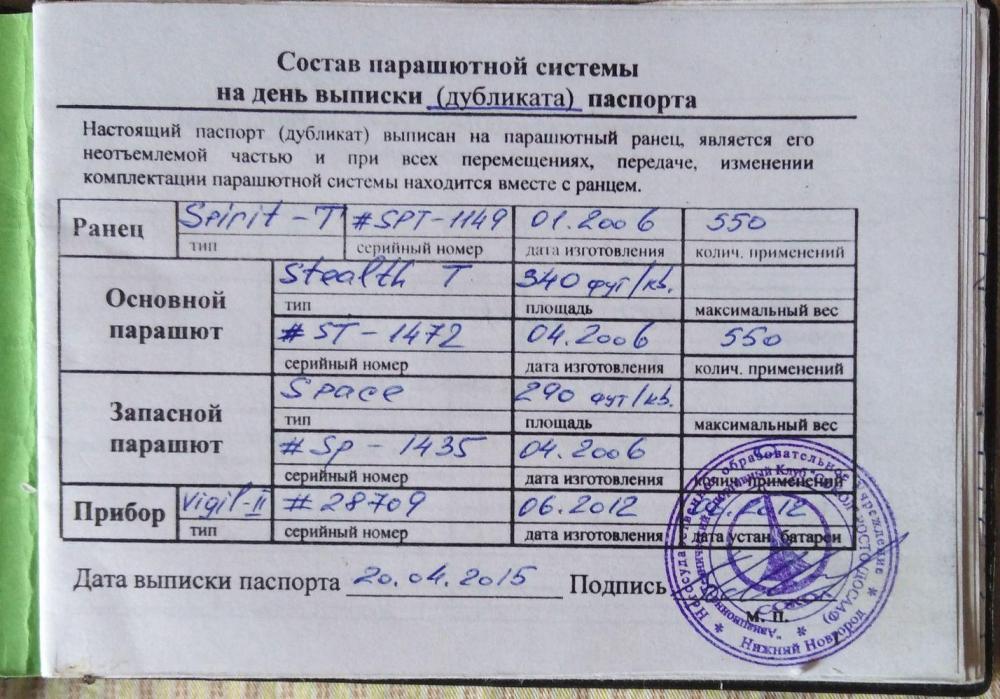 Состав парашютной системы
на день выписки (дубликата) паспорта
Настоящий паспорт (дубликат) выписан на парашютный ранец, является его
неотъемлемой частью и при всех перемещениях, передаче, изменении
комплектации парашютной системы находится вместе с ранцем.
Ранец Spirit-T #SPT-1149 01.2006 550
тип серийный номер дата изготовления колич. применений
Основной парашют
Stealth T 340 фут/кв.
тип площадь максимальный вес
#ST-1472 04.2006 550
серийный номер дата изготовления колич. применений
Запасной парашют
Space 290 фут/кв.
тип площадь максимальный вес
#Sp-1435 04.2006
серийный номер дата изготовления колич. применений
Прибор Vigil-II #28709 06.2012 2012
тип серийный номер дата изготовления дата устан. батареи
Дата выписки паспорта 20.04.2015 Подпись
м. п.
Негосударственное образовательное учреждение
Нижний Новгород